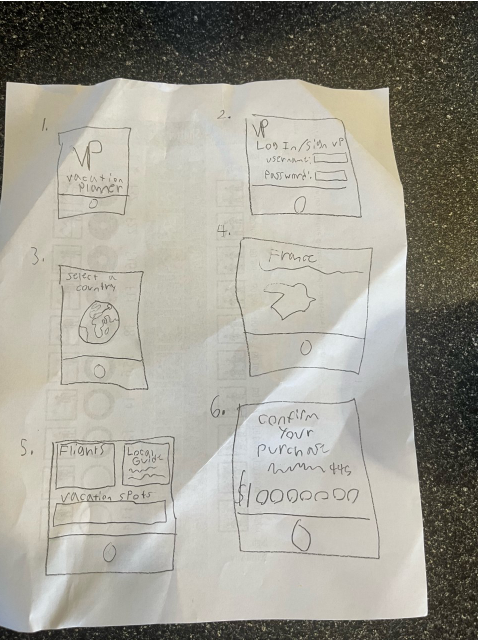 1.
VP
vacation
Planner
2.
VP
Log In/Sign up
username:
Password:
3.
Select a
country
4.
France
5.
Flights
Local
Guide
vacation spots
6.
confirm
Your
Purchase
$10000000